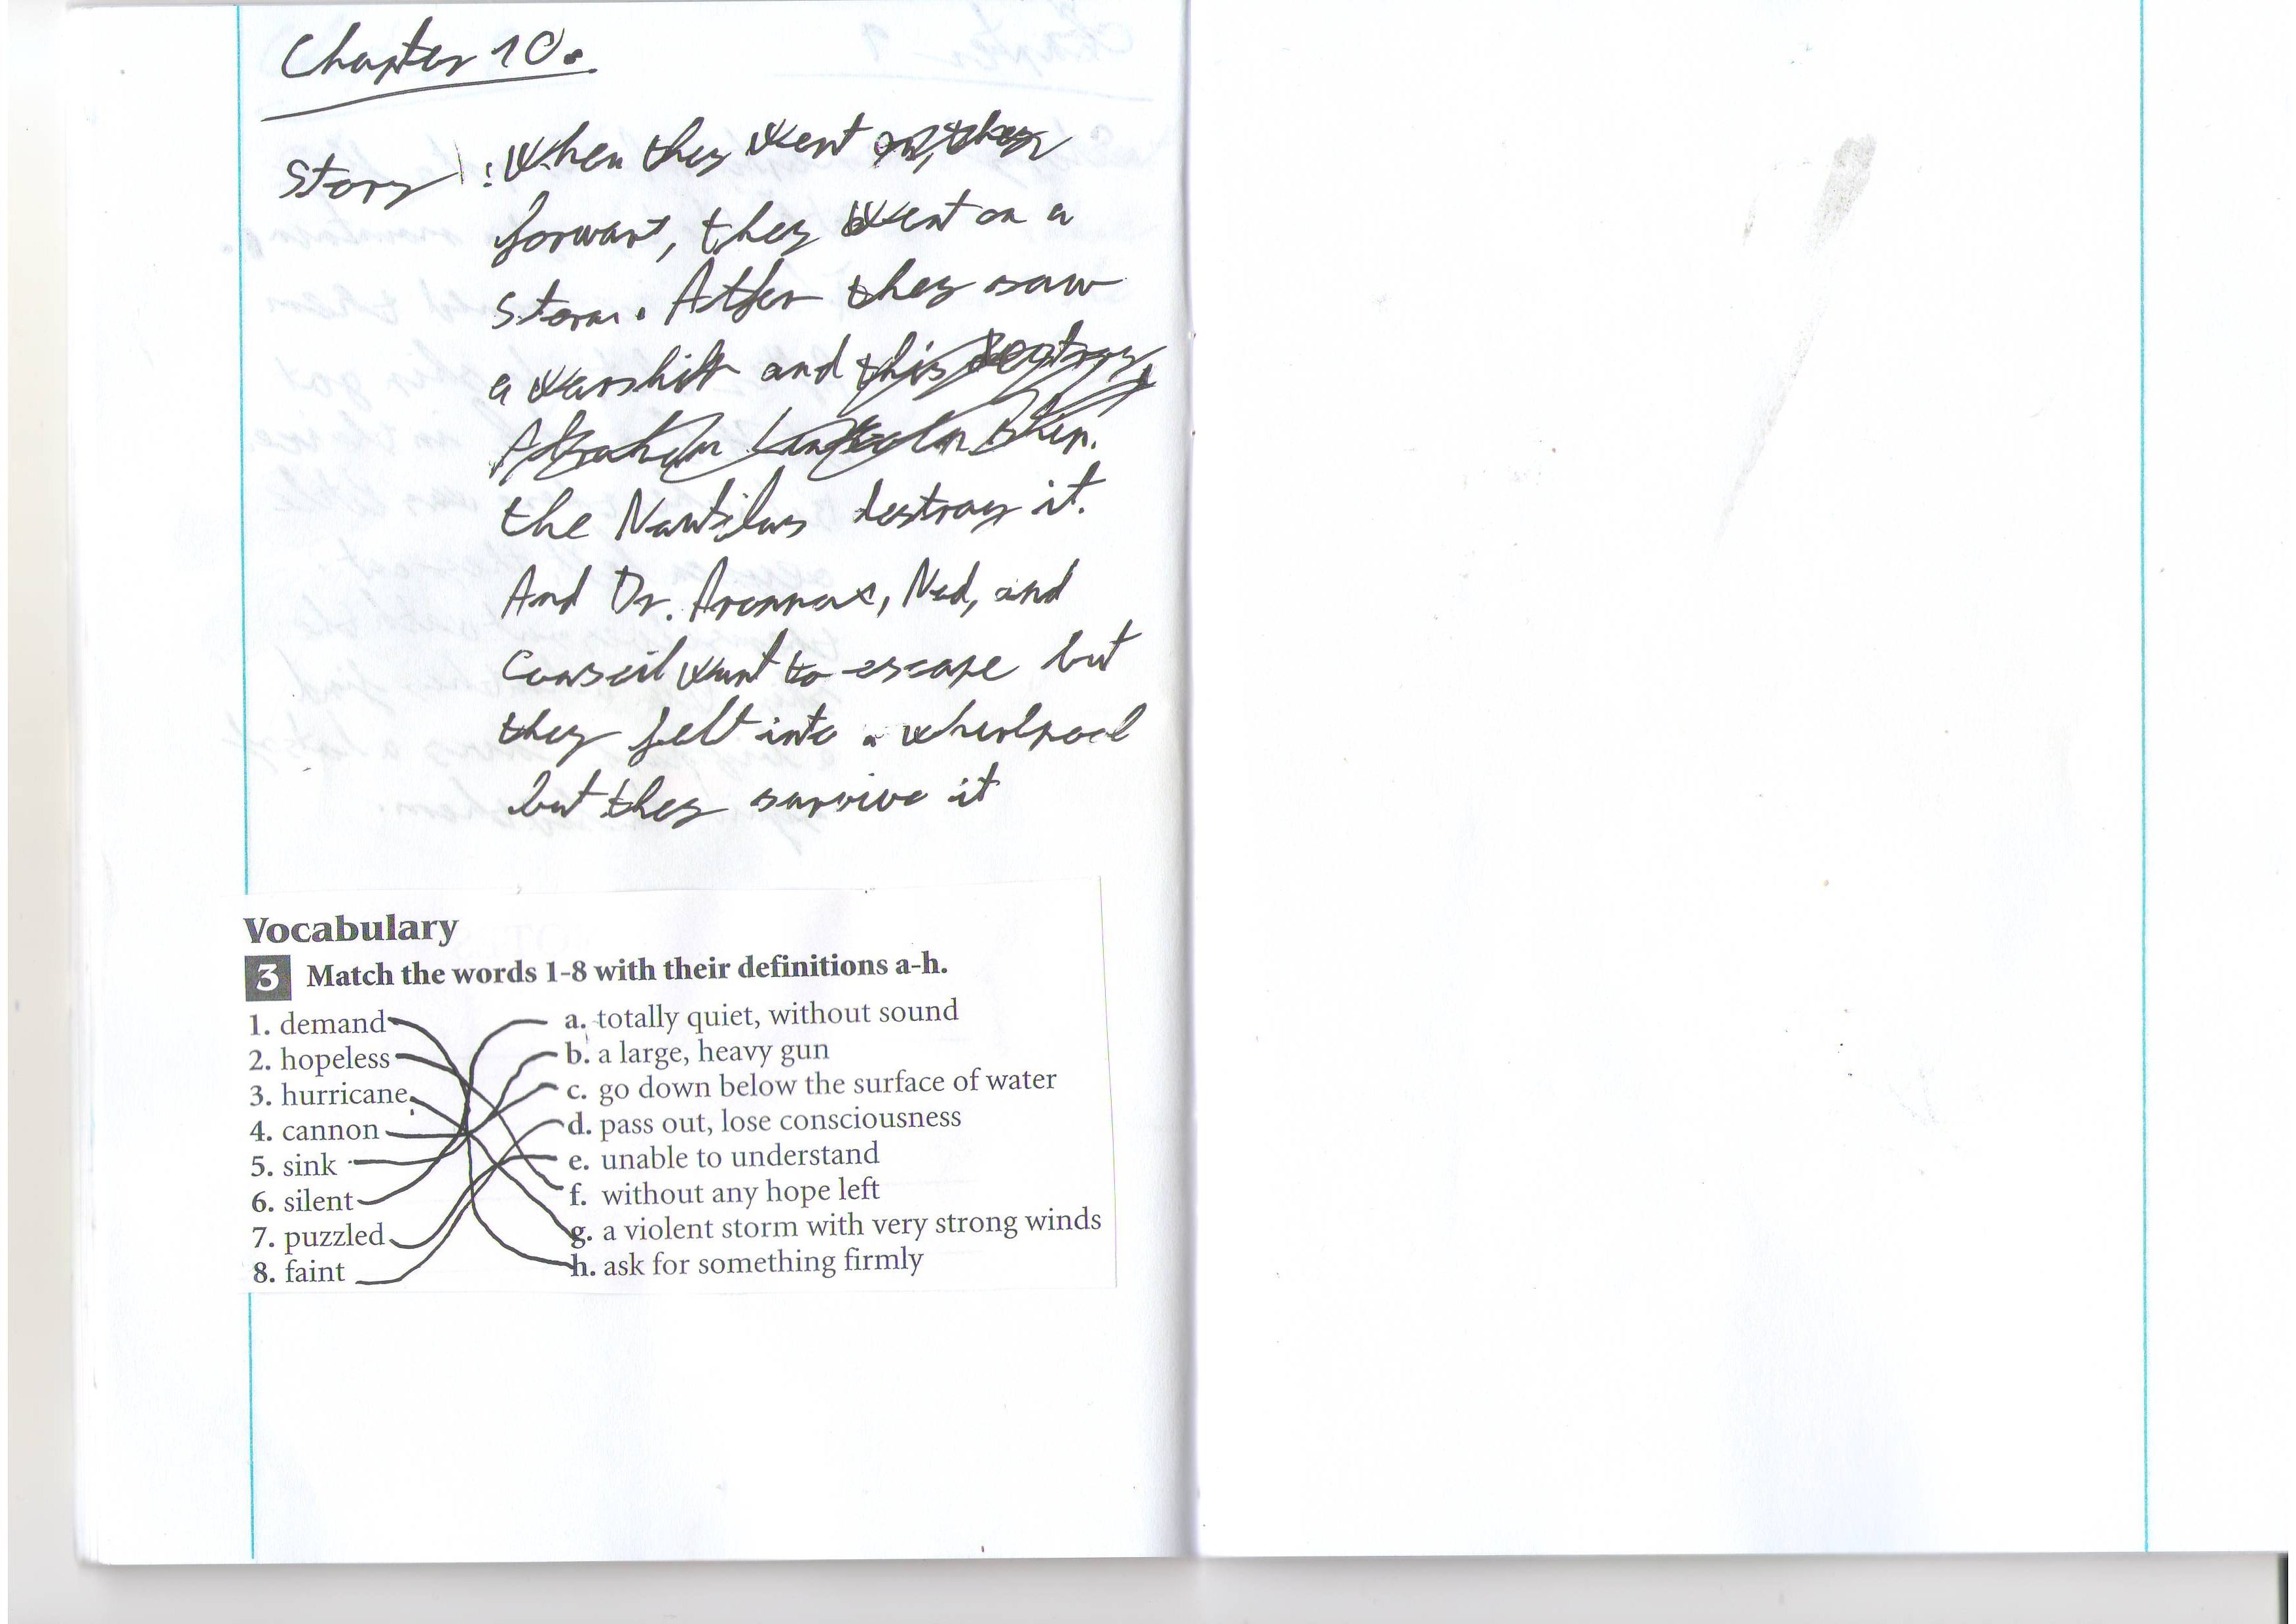 Chapter 10.
Story : When they went on, they
forwart, they went on a
storm. Atfer they saw
a warshitt and this destroy
Abraham Lincoln ship.
the Nautilus destroy it.
And Dr. Aronnax, Ned, and
Conseil want to escape but
they felt into a whirlpool
but they survive it
Vocabulary
3 Match the words 1-8 with their definitions a-h.
1. demand a. totally quiet, without sound
2. hopeless b. a large, heavy gun
3. hurricane c. go down below the surface of water
4. cannon d. pass out, lose consciousness
5. sink e. unable to understand
6. silent f. without any hope left
7. puzzled g. a violent storm with very strong winds
8. faint h. ask for something firmly